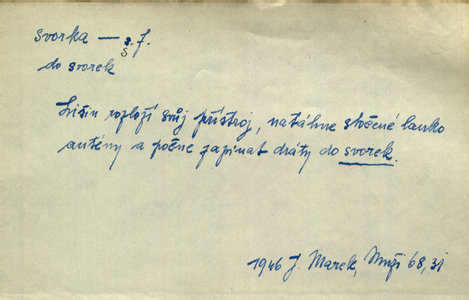 svorka — s. f.
do svorek
Lišin rozloží svůj přístroj, natáhne stočené lanko
antény a počne zapínat dráty do svorek.
1946 J. Marek, Muži 68, 31